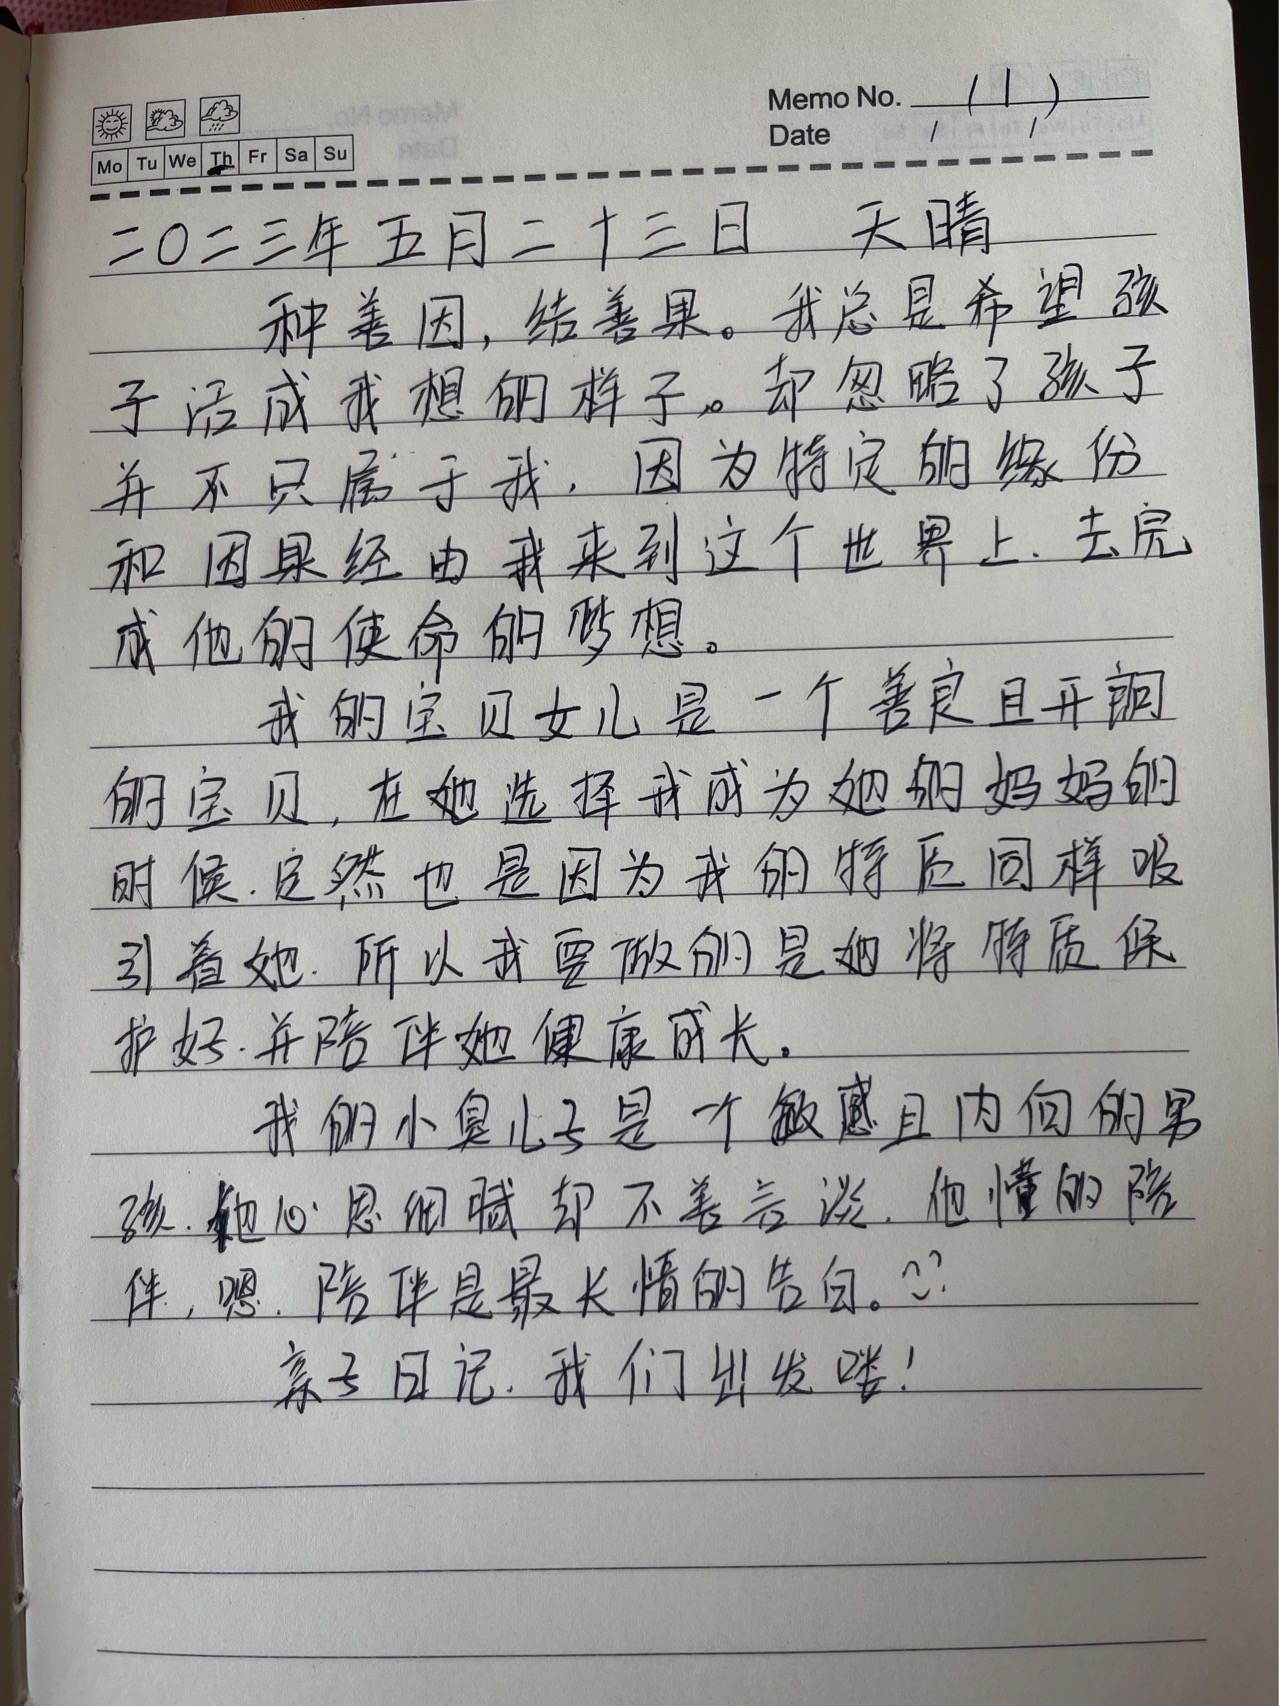 Memo No. (1)
Date / /
Mo Tu We Th Fr Sa Su
二〇二三年五月二十三日 天晴
种善因，结善果。我总是希望孩
子活成我想的样子。却忽略了孩子
并不只属于我，因为特定的缘份
和因果经由我来到这个世界上.去完
成他的使命的梦想。
我的宝贝女儿是一个善良且开朗
的宝贝，在她选择我成为她的妈妈的
时候.定然也是因为我的特质同样吸
引着她.所以我要做的是她将特质保
护好.并陪伴她健康成长。
我的小臭儿子是一个敏感且内向的男
孩.他心思细腻却不善言谈.他懂的陪
伴，嗯.陪伴是最长情的告白。
亲子日记.我们出发喽！